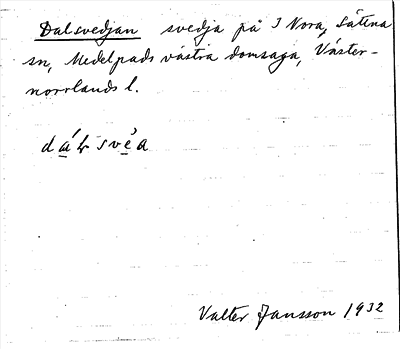 Dalsvedjan svedja på 3 Nora, Sättna
sn, Medelpads västra domsaga, Väster-
norrlands l.
Valter Jansson 1932